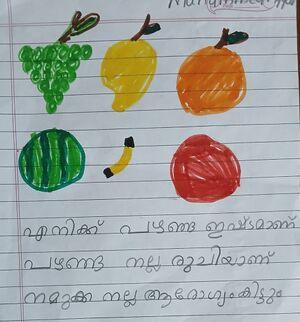 എനിക്ക് പഴങ്ങ ഇഷ്ടമാണ്
പഴങ്ങൾ നല്ല രുചിയാണ്
നമുക്ക നല്ല ആരോഗ്യംകിട്ടും